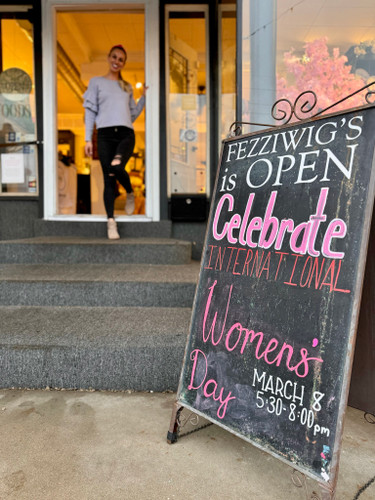 FEZZIWIG'S
is OPEN
Celebrate
INTERNATIONAL
Women's'
Day
MARCH 8
5:30-8:00pm